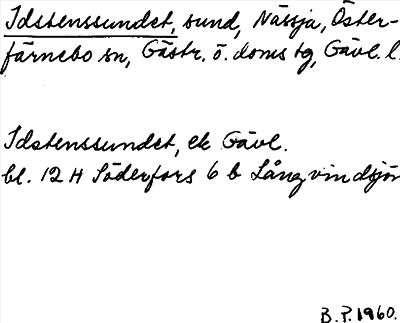 Idstenssundet, sund, Nässja, Öster-
färnebo sn, Gästr. ö. doms tg, Gävl. l.
Idstenssundet, ek Gävl.
bl. 12 H Söderfors 6 b Långvindsjön
B.P. 1960.